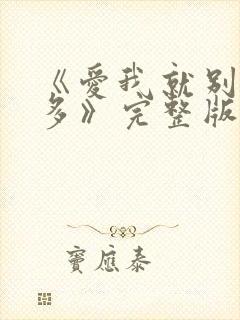 《爱我就别
多》完整版
窦应泰